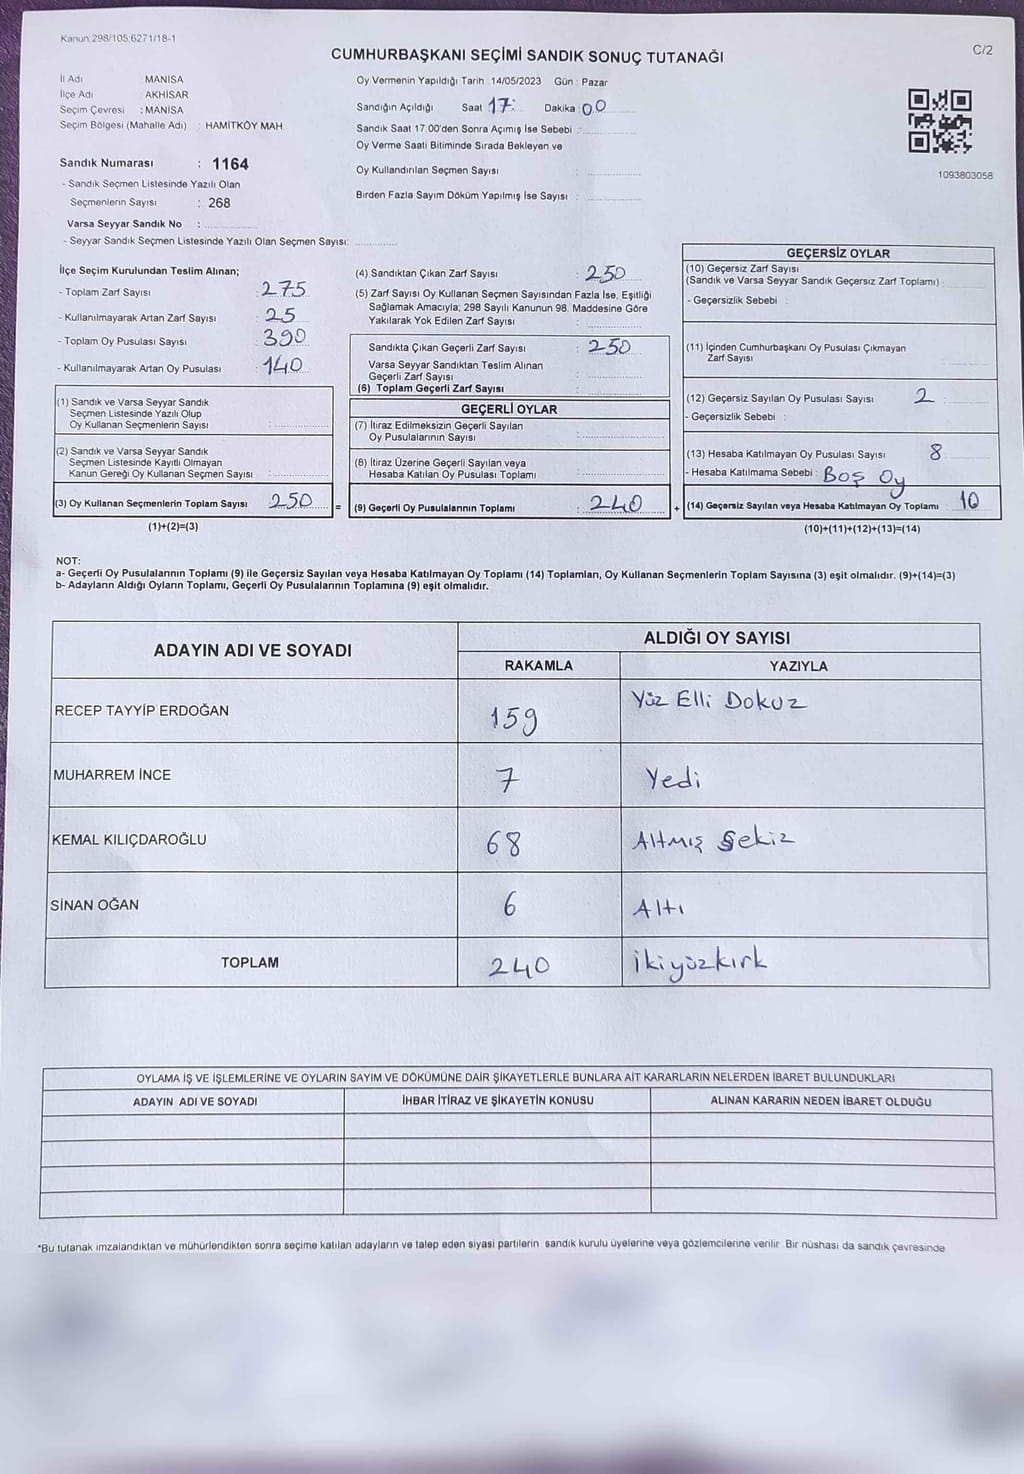 Kanun:298/105;6271/18-1
C/2
CUMHURBAŞKANI SEÇİMİ SANDIK SONUÇ TUTANAĞI
İl Adı MANİSA
İlçe Adı AKHİSAR
Seçim Çevresi : MANİSA
Seçim Bölgesi (Mahalle Adı) : HAMİTKÖY MAH.
Sandık Numarası : 1164
- Sandık Seçmen Listesinde Yazılı Olan
Seçmenlerin Sayısı : 268
Varsa Seyyar Sandık No :
- Seyyar Sandık Seçmen Listesinde Yazılı Olan Seçmen Sayısı:
Oy Vermenin Yapıldığı Tarih : 14/05/2023 Gün : Pazar
Sandığın Açıldığı Saat 17: Dakika 00
Sandık Saat 17:00'den Sonra Açımış İse Sebebi :
Oy Verme Saati Bitiminde Sırada Bekleyen ve
Oy Kullandırılan Seçmen Sayısı :
Birden Fazla Sayım Döküm Yapılmış İse Sayısı :
1093803058
İlçe Seçim Kurulundan Teslim Alınan;
- Toplam Zarf Sayısı : 275
- Kullanılmayarak Artan Zarf Sayısı : 25
- Toplam Oy Pusulası Sayısı : 390
- Kullanılmayarak Artan Oy Pusulası : 140
(1) Sandık ve Varsa Seyyar Sandık
Seçmen Listesinde Yazılı Olup
Oy Kullanan Seçmenlerin Sayısı :
(2) Sandık ve Varsa Seyyar Sandık
Seçmen Listesinde Kayıtlı Olmayan
Kanun Gereği Oy Kullanan Seçmen Sayısı :
(3) Oy Kullanan Seçmenlerin Toplam Sayısı : 250
(1)+(2)=(3)
(4) Sandıktan Çıkan Zarf Sayısı : 250
(5) Zarf Sayısı Oy Kullanan Seçmen Sayısından Fazla İse, Eşitliği
Sağlamak Amacıyla; 298 Sayılı Kanunun 98. Maddesine Göre
Yakılarak Yok Edilen Zarf Sayısı :
Sandıkta Çıkan Geçerli Zarf Sayısı : 250
Varsa Seyyar Sandıktan Teslim Alınan
Geçerli Zarf Sayısı :
(6) Toplam Geçerli Zarf Sayısı :
GEÇERLİ OYLAR
(7) İtiraz Edilmeksizin Geçerli Sayılan
Oy Pusulalarının Sayısı :
(8) İtiraz Üzerine Geçerli Sayılan veya
Hesaba Katılan Oy Pusulası Toplamı :
= (9) Geçerli Oy Pusulalarının Toplamı : 240
GEÇERSİZ OYLAR
(10) Geçersiz Zarf Sayısı
(Sandık ve Varsa Seyyar Sandık Geçersiz Zarf Toplamı) :
- Geçersizlik Sebebi :
(11) İçinden Cumhurbaşkanı Oy Pusulası Çıkmayan
Zarf Sayısı
(12) Geçersiz Sayılan Oy Pusulası Sayısı 2
- Geçersizlik Sebebi :
(13) Hesaba Katılmayan Oy Pusulası Sayısı 8
- Hesaba Katılmama Sebebi : Boş Oy
+ (14) Geçersiz Sayılan veya Hesaba Katılmayan Oy Toplamı : 10
(10)+(11)+(12)+(13)=(14)
NOT:
a- Geçerli Oy Pusulalarının Toplamı (9) ile Geçersiz Sayılan veya Hesaba Katılmayan Oy Toplamı (14) Toplamları, Oy Kullanan Seçmenlerin Toplam Sayısına (3) eşit olmalıdır. (9)+(14)=(3)
b- Adayların Aldığı Oyların Toplamı, Geçerli Oy Pusulalarının Toplamına (9) eşit olmalıdır.
ADAYIN ADI VE SOYADI
ALDIĞI OY SAYISI
RAKAMLA YAZIYLA
RECEP TAYYİP ERDOĞAN 159 Yüz Elli Dokuz
MUHARREM İNCE 7 Yedi
KEMAL KILIÇDAROĞLU 68 Altmış Sekiz
SİNAN OĞAN 6 Altı
TOPLAM 240 ikiyüzkırk
OYLAMA İŞ VE İŞLEMLERİNE VE OYLARIN SAYIM VE DÖKÜMÜNE DAİR ŞİKAYETLERLE BUNLARA AİT KARARLARIN NELERDEN İBARET BULUNDUKLARI
ADAYIN ADI VE SOYADI İHBAR İTİRAZ VE ŞİKAYETİN KONUSU ALINAN KARARIN NEDEN İBARET OLDUĞU
*Bu tutanak imzalandıktan ve mühürlendikten sonra seçime katılan adayların ve talep eden siyasi partilerin sandık kurulu üyelerine veya gözlemcilerine verilir. Bir nüshası da sandık çevresinde